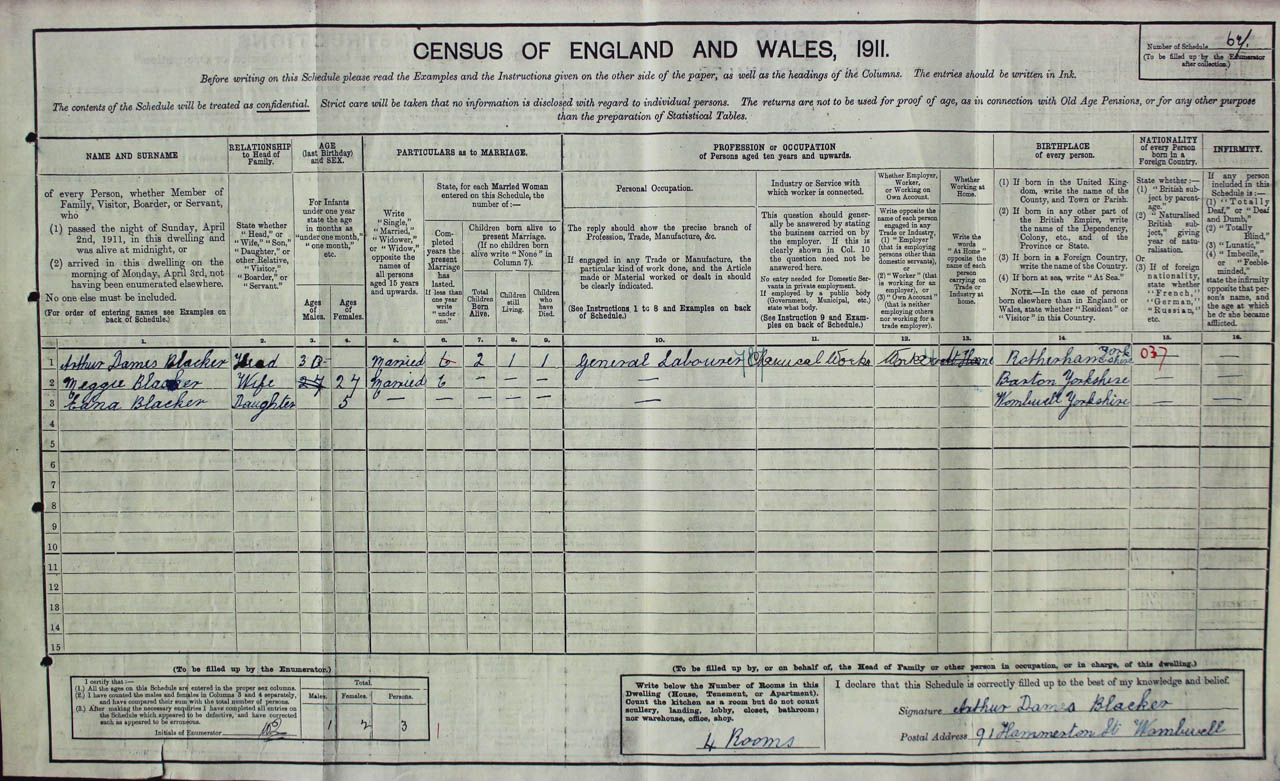 CENSUS OF ENGLAND AND WALES, 1911.
Number of Schedule
(To be filled up by the Enumerator
after collection.)
Before writing on this Schedule please read the Examples and the Instructions given on the other side of the paper, as well as the headings of the Columns. The entries should be written in Ink.
The contents of the Schedule will be treated as confidential. Strict care will be taken that no information is disclosed with regard to individual persons. The returns are not to be used for proof of age, as in connection with Old Age Pensions, or for any other purpose
than the preparation of Statistical Tables.
NAME AND SURNAME
of every Person, whether Member of
Family, Visitor, Boarder, or Servant,
who
(1) passed the night of Sunday, April
2nd, 1911, in this dwelling and
was alive at midnight, or
(2) arrived in this dwelling on the
morning of Monday, April 3rd, not
having been enumerated elsewhere.
No one else must be included.
(For order of entering names see Examples on
back of Schedule.)
RELATIONSHIP
to Head of
Family.
State whether
"Head," or
"Wife," "Son,"
"Daughter," or
other Relative,
"Visitor,"
"Boarder," or
"Servant."
AGE
(last Birthday)
and SEX.
For Infants
under one year
state the age
in months as
"under one month,"
"one month,"
etc.
Ages
of
Males.
Ages
of
Females.
PARTICULARS as to MARRIAGE.
Write
"Single,"
"Married,"
"Widower,"
or "Widow,"
opposite the
names of
all persons
aged 15 years
and upwards.
State, for each Married Woman
entered on this Schedule, the
number of:—
Completed
years the
present
Marriage
has
lasted.
If less than
one year
write
"under
one."
Children born alive to
present Marriage.
(If no children born
alive write "None" in
Column 7).
Total
Children
Born
Alive.
Children
still
Living.
Children
who
have
Died.
PROFESSION or OCCUPATION
of Persons aged ten years and upwards.
Personal Occupation.
The reply should show the precise branch of
Profession, Trade, Manufacture, &c.
If engaged in any Trade or Manufacture, the
particular kind of work done, and the Article
made or Material worked or dealt in should
be clearly indicated.
(See Instructions 1 to 8 and Examples on back
of Schedule.)
Industry or Service with
which worker is connected.
This question should generally
be answered by stating
the business carried on by
the employer. If this is
clearly shown in Col. 10
the question need not be
answered here.
No entry needed for Domestic Servants
in private employment.
If employed by a public body
(Government, Municipal, etc.)
state what body.
(See Instruction 9 and Examples
on back of Schedule.)
Whether Employer,
Worker,
or Working on
Own Account.
Write opposite the
name of each person
engaged in any
Trade or Industry,
(1) "Employer"
(that is employing
persons other than
domestic servants),
or
(2) "Worker" (that
is working for an
employer), or
(3) "Own Account"
(that is neither
employing others
nor working for a
trade employer).
Whether
Working at
Home.
Write the
words
"At Home"
opposite the
name of each
person
carrying on
Trade or
Industry at
home.
BIRTHPLACE
of every person.
(1) If born in the United Kingdom,
write the name of the
County, and Town or Parish.
(2) If born in any other part of
the British Empire, write
the name of the Dependency,
Colony, etc., and of the
Province or State.
(3) If born in a Foreign Country,
write the name of the Country.
(4) If born at sea, write "At Sea."
NOTE.—In the case of persons
born elsewhere than in England or
Wales, state whether "Resident" or
"Visitor" in this Country.
NATIONALITY
of every Person
born in a
Foreign Country.
State whether:—
(1) "British subject
by parentage."
(2) "Naturalised
British subject,"
giving
year of naturalisation.
Or
(3) If of foreign
nationality,
state whether
"French,"
"German,"
"Russian,"
etc.
INFIRMITY.
If any person
included in this
Schedule is:—
(1) "Totally
Deaf," or "Deaf
and Dumb,"
(2) "Totally
Blind,"
(3) "Lunatic,"
(4) "Imbecile,"
or "Feeble-
minded,"
state the infirmity
opposite that person's
name, and
the age at which
he or she became
afflicted.
1. 2. 3. 4. 5. 6. 7. 8. 9. 10. 11. 12. 13. 14. 15. 16.
1 Arthur James Blacker Head 30 Married 6 2 1 1 General Labourer Chemical Works Worker At Home Rotherham Yorkshire 037 —
2 Meggie Blacker Wife 27 27 Married 6 — — — — Barton Yorkshire — —
3 Edna Blacker Daughter 5 — — — — — — Wombwell Yorkshire — —
4
5
6
7
8
9
10
11
12
13
14
15
(To be filled up by the Enumerator.)
I certify that:—
(1.) All the ages on this Schedule are entered in the proper sex columns.
(2.) I have counted the males and females in Columns 3 and 4 separately,
and have compared their sum with the total number of persons.
(3.) After making the necessary enquiries I have completed all entries on
the Schedule which appeared to be defective, and have corrected
such as appeared to be erroneous.
Initials of Enumerator
Total.
Males. Females. Persons.
1 2 3
(To be filled up by, or on behalf of, the Head of Family or other person in occupation, or in charge, of this dwelling.)
Write below the Number of Rooms in this
Dwelling (House, Tenement, or Apartment).
Count the kitchen as a room but do not count
scullery, landing, lobby, closet, bathroom;
nor warehouse, office, shop.
4 Rooms
I declare that this Schedule is correctly filled up to the best of my knowledge and belief.
Signature Arthur James Blacker
Postal Address 91 Hammerton St Wombwell